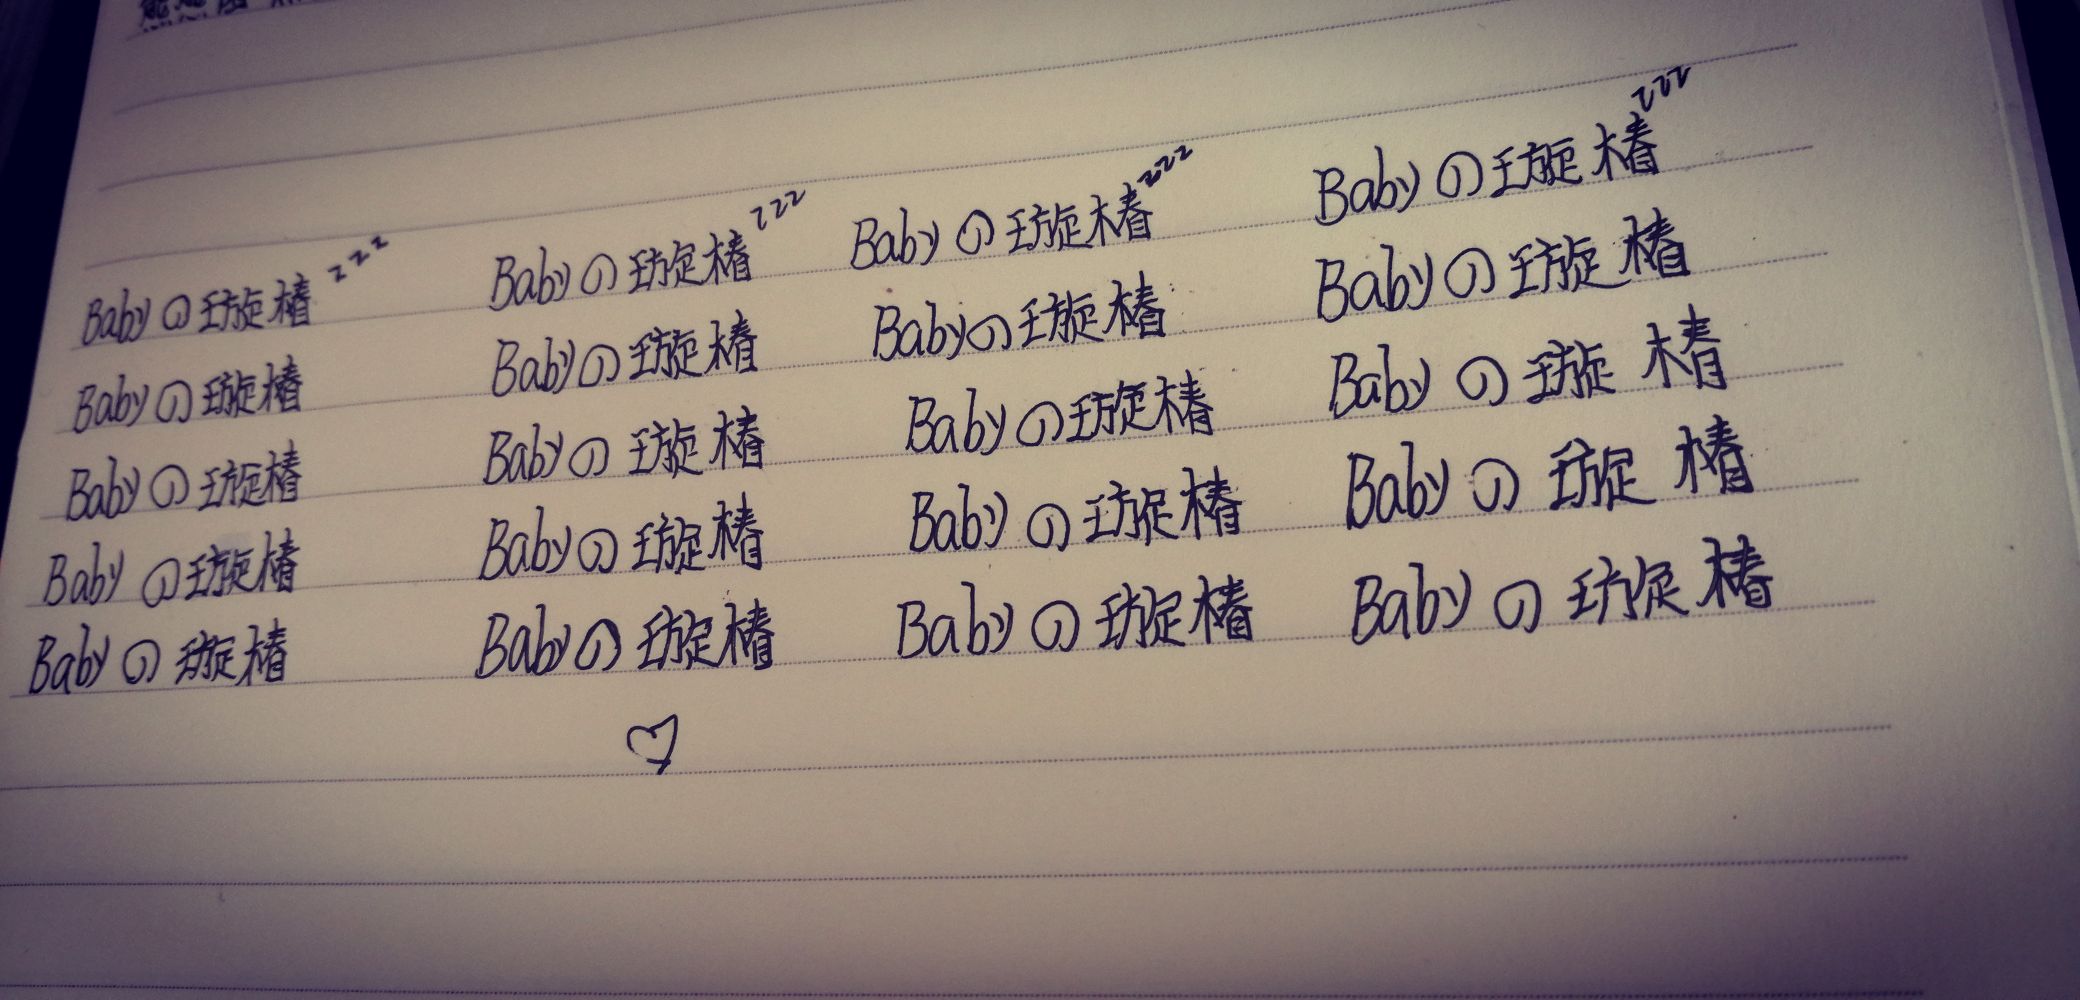 Babyの璇椿 zzz Babyの璇椿 zzz Babyの璇椿 zzz Babyの璇椿 zzz
Babyの璇椿 Babyの璇椿 Babyの璇椿 Babyの璇椿
Babyの璇椿 Babyの璇椿 Babyの璇椿 Babyの璇椿
Babyの璇椿 Babyの璇椿 Babyの璇椿 Babyの璇椿
Babyの璇椿 Babyの璇椿 Babyの璇椿 Babyの璇椿